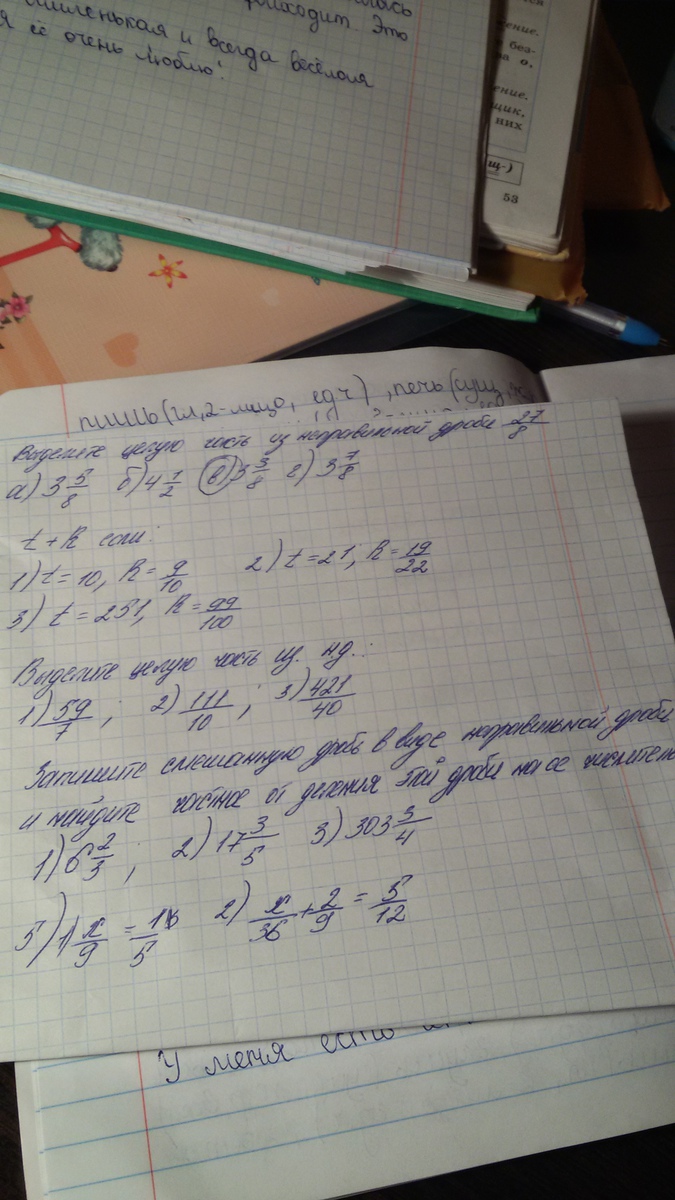 приходит. Это
миленькая и всегда весёлая
я её очень люблю!
ение.
без-
о.
ение.
щик.
них
щ-)
53
пишь (гл, 2-лицо, ед ч), печь (сущ,
Выделите целую часть из неправильной дроби 27/8
а) 3 5/8 б) 4 1/2 в) 3 3/8 г) 3 7/8
t + k если:
1) t = 10, k = 9/10 2) t = 21; k = 19/22
3) t = 251, k = 99/100
Выделите целую часть из. н.д.:
1) 59/7; 2) 111/10; 3) 421/40
Запишите смешанную дробь в виде неправильной дроби
и найдите частное от деления этой дроби на ее числитель
1) 6 2/3; 2) 17 3/5 3) 303 3/4
5) 1) x/9 = /5 2) x/36 + 2/9 = 5/12
У меня есть